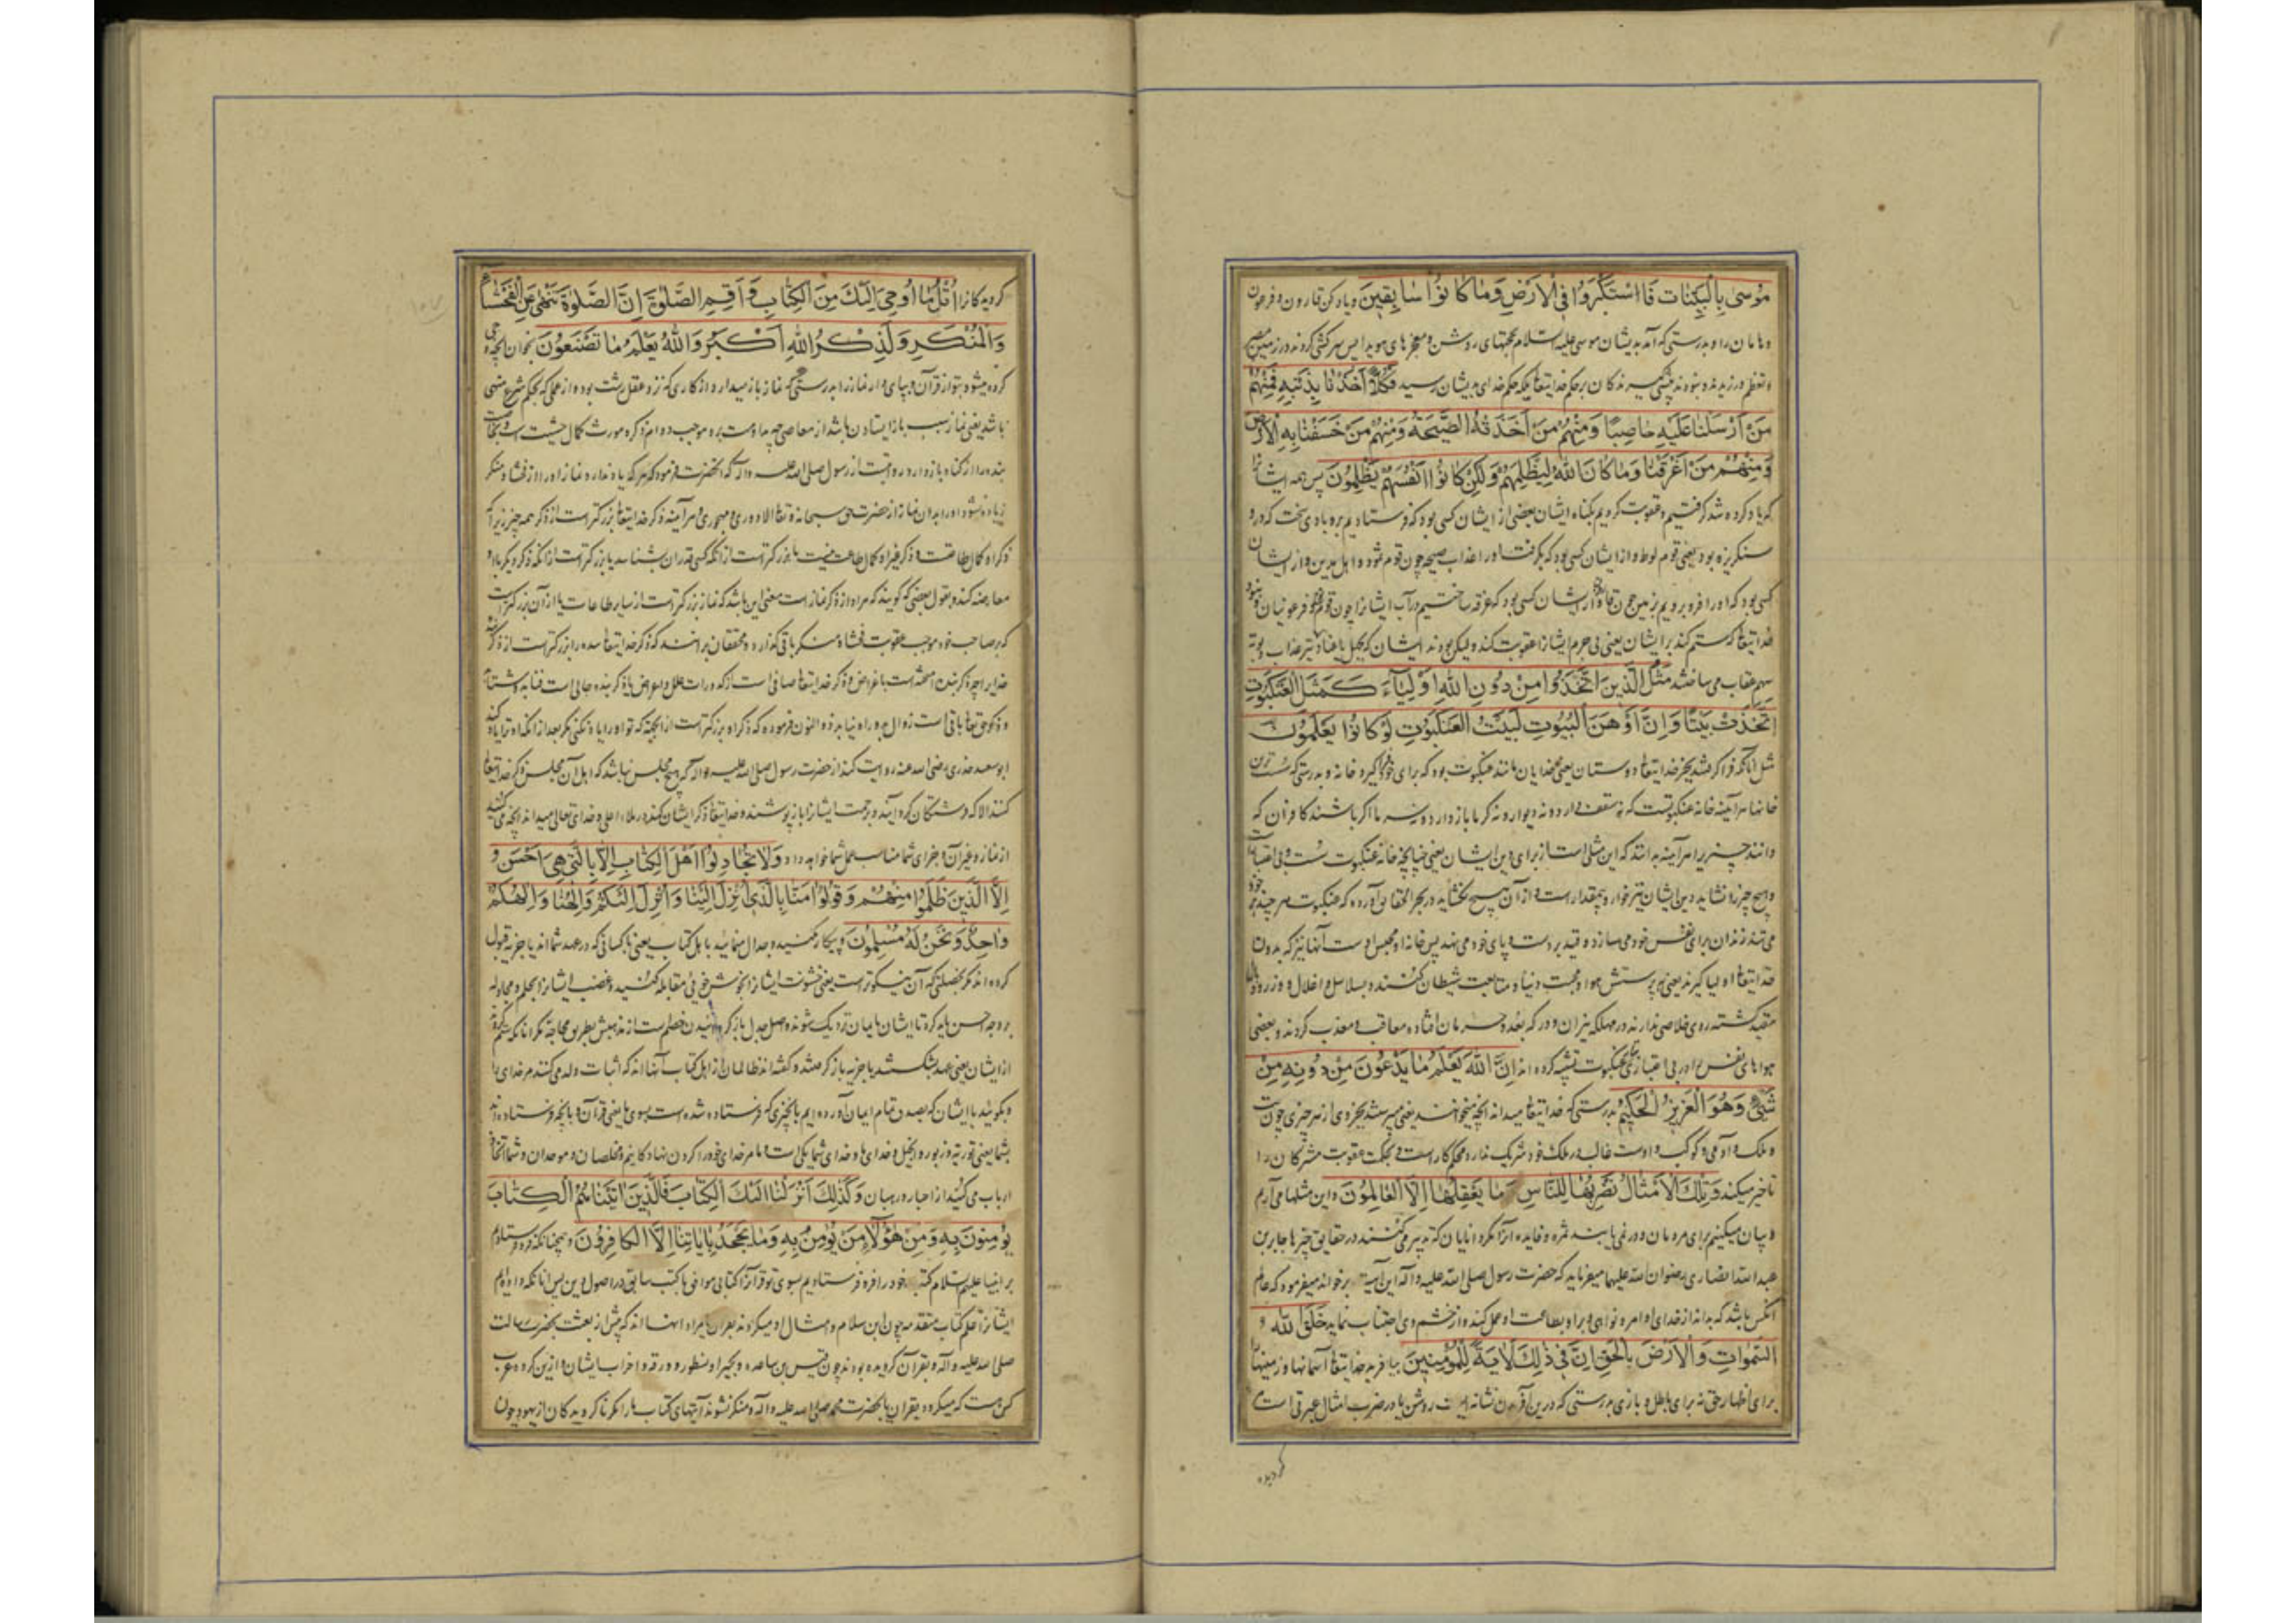 مُوسىٰ بِالْبَيِّنَاتِ فَاسْتَكْبَرُوا فِي الْاَرْضِ وَمَا كَانُوا سَابِقِينَ و یاد کن قارون و فرعون
و هامان را و بدرستی که آمد بدیشان موسی علیه السلام بحجتهای روشن و معجزهای هویدا پس سرکشی کردند در زمین مصر
و تعظم ورزیدند و نبودند پیشی گیرندکان بر حکم خدایتعا بلکه حکم خدای بدیشان رسید فَكُلًّا اَخَذْنَا بِذَنْبِهِ فَمِنْهُمْ
مَنْ اَرْسَلْنَا عَلَيْهِ حَاصِبًا وَمِنْهُمْ مَنْ اَخَذَتْهُ الصَّيْحَةُ وَمِنْهُمْ مَنْ خَسَفْنَا بِهِ الْاَرْضَ
وَمِنْهُمْ مَنْ اَغْرَقْنَا وَمَا كَانَ اللّٰهُ لِيَظْلِمَهُمْ وَلٰكِنْ كَانُوا اَنْفُسَهُمْ يَظْلِمُونَ پس همه ایشانرا
که یاد کرده شد گرفتیم و عقوبت کردیم بکناه ایشان بعضی از ایشان کسی بود که فرستادیم برو بادی سخت که درو
سنکریزه بود یعنی قوم لوط و از ایشان کسی بود که بکرفت اورا عذاب صیحه چون قوم ثمود و اهل مدین و از ایشان
کسی بود که اورا فرو بردیم بزمین چون قارون و از ایشان کسی بود که غرقه ساختیم در آب ایشانرا چون قوم نوح و فرعونیان و نبود
خدایتعا که ستم کند بر ایشان یعنی بی جرم ایشانرا عقوبت کند ولیکن بودند ایشان که
مَثَلُ الَّذِينَ اتَّخَذُوا مِنْ دُونِ اللّٰهِ اَوْلِيَاءَ كَمَثَلِ الْعَنْكَبُوتِ
اتَّخَذَتْ بَيْتًا وَاِنَّ اَوْهَنَ الْبُيُوتِ لَبَيْتُ الْعَنْكَبُوتِ لَوْ كَانُوا يَعْلَمُونَ
مثل آنانکه فرا کرفتند بجز خدایتعا دوستان یعنی خدایان مانند عنکبوت بود که برای خود فرا کیرد خانه و بدرستی که سست ترین
خانها هر آینه خانه عنکبوتست که نه سقف دارد و نه دیوار و نه کرما باز دارد و نه سرما اکر باشند کافران که
دانند چیزیرا هر آینه بدانند که این مثلی است از برای دین ایشان یعنی چنانچه خانه عنکبوت سست و بی اعتبار است
و هیچ چیز را نشاید دین ایشان نیز خوار و بیمقدار است و از آن هیچ نکشاید در بحر الحقایق آورده که عنکبوت هر چند بر خود
می تند زندان برای نفس خود می سازد و قید بر دست و پای خود می نهد پس خانه او محبس اوست آنها نیز که بدون
خدایتعا اولیا کیرند یعنی پرستش هوا و محبت دنیا و متابعت شیطان کنند بسلاسل و اغلال و وزر و وبال
مقید کشته روی خلاصی ندارند
هوا های نفس را در بی اعتباری بعنکبوت تشبیه کرده اند اِنَّ اللّٰهَ يَعْلَمُ مَا يَدْعُونَ مِنْ دُونِهِ مِنْ
شَيْءٍ وَهُوَ الْعَزِيزُ الْحَكِيمُ بدرستی که خدایتعا میداند آنچه میخوانند یعنی می پرستند بجز وی از هر چیزی چون بت
و ملک و آدمی و کوکب و اوست غالب در ملک خود شریک ندارد محکم کار است و بحکمت عقوبت مشرکان را
تاخیر میکند وَتِلْكَ الْاَمْثَالُ نَضْرِبُهَا لِلنَّاسِ وَمَا يَعْقِلُهَا اِلَّا الْعَالِمُونَ و این مثلها می آریم
و بیان میکنیم برای مردمان و در نمی یابند ثمره و فایده آنرا مکر دانایان که تدبر می کنند در حقایق چیزها جابر بن
عبد الله انصاری رضوان الله علیهما میفرماید که حضرت رسول صلی الله علیه و آله این آیت بر خواند میفرمود که عالم
آنکس باشد که بداند از خدای اوامر و نواهی ویرا و بطاعت او عمل کند و از خشم وی اجتناب نماید خَلَقَ اللّٰهُ
السَّمٰوَاتِ وَالْاَرْضَ بِالْحَقِّ اِنَّ فِي ذٰلِكَ لَاٰيَةً لِلْمُؤْمِنِينَ بیافرید خدایتعا آسمانها و زمینها
برای اظهار حق نه برای باطل و بازی بدرستی که درین آفریدن نشانه ایست روشن یا در ضرب امثال عبرتی است
کردیده
کردیدکانرا اُتْلُ مَا اُوحِيَ اِلَيْكَ مِنَ الْكِتَابِ وَاَقِمِ الصَّلٰوةَ اِنَّ الصَّلٰوةَ تَنْهٰى عَنِ الْفَحْشَاءِ
وَالْمُنْكَرِ وَلَذِكْرُ اللّٰهِ اَكْبَرُ وَاللّٰهُ يَعْلَمُ مَا تَصْنَعُونَ بخوان آنچه وحی
کرده میشود بتو از قرآن و بپای دار نماز را بدرستی که نماز باز میدارد از کاری که نزد عقل زشت بود و از عملی که بحکم شرع منهی
باشد یعنی نماز سبب باز ایستادن باشد از معاصی چه مداومت برو موجب دوام ذکر و مورث کمال خشیت است
بنده را از کناه باز دارد
زیاده نشود اورا بدان نماز از حضرت حق سبحانه و تعا الا دوری و مهجوری و هر آینه ذکر خدایتعا بزرکتر است از ذکر همه چیز زیرا که
ذکر او کمال طاعتست و ذکر غیر او کمال طاعت نیست
معارضه کند و بقول بعضی که کویند که مراد از ذکر نماز است معنی این باشد که نماز بزرکتر است از سایر طاعات
و محققان بر آنند که ذکر خدایتعا بنده را بزرکتر است از ذکر بنده
خدایرا چه ذکر بنده آمیخته است باغراض و ذکر خدایتعا صافی است از کدورات علل و اعراض
و ذکر حق تعا باقی است زوال بدو راه نیابد ذو النون فرموده که ذکر او بزرکتر است از آنچه که تو اورا یاد کنی مکر بعد از آنکه او ترا یاد کند
ابو سعید خدری رضی الله عنه روایت کند از حضرت رسول صلی الله علیه و آله که هیچ مجلس نباشد که اهل آن مجلس ذکر خدایتعا
کنند الا که فرشتکان کرد آیند و برحمت ایشانرا باز پوشند و خدایتعا ذکر ایشان کند در ملاء اعلی و خدای تعالی میداند آنچه می کنید
از نماز و غیر آن جزای شما مناسب عمل شما خواهد داد وَلَا تُجَادِلُوا اَهْلَ الْكِتَابِ اِلَّا بِالَّتِي هِيَ اَحْسَنُ و
اِلَّا الَّذِينَ ظَلَمُوا مِنْهُمْ وَقُولُوا اٰمَنَّا بِالَّذِي اُنْزِلَ اِلَيْنَا وَاُنْزِلَ اِلَيْكُمْ وَاِلٰهُنَا وَاِلٰهُكُمْ
وَاحِدٌ وَنَحْنُ لَهُ مُسْلِمُونَ و پیکار مکنید و جدال منمائید با اهل کتاب یعنی با کسانی که در عهد شما اند یا جزیه قبول
کرده اند مکر بخصلتی که آن نیکوتر است یعنی خشونت ایشانرا بخوش خویی مقابله کنید و غضب ایشانرا بحلم و مجادله
بر وجه احسن باید کرد تا ایشان بایمان نزدیک شوند
از ایشان یعنی عهد بشکستند یا جزیه باز کرفتند و کفته اند ظالمان از اهل کتاب آنها اند که اثبات ولد می کنند مر خدای را
و بکوئید با ایشان که بصدق تمام ایمان آورده ایم بآنچیزی که فرستاده شده است بسوی ما یعنی قرآن و بآنچه فرستاده اند
بشما یعنی توریة و زبور و انجیل و خدای ما و خدای شما یکی است و ما مر خدای خود را کردن نهادکانیم و مخلصان و موحدان
ارباب می کنید از احبار و رهبان وَكَذٰلِكَ اَنْزَلْنَا اِلَيْكَ الْكِتَابَ فَالَّذِينَ اٰتَيْنَاهُمُ الْكِتَابَ
يُؤْمِنُونَ بِهِ وَمِنْ هٰؤُلَاءِ مَنْ يُؤْمِنُ بِهِ وَمَا يَجْحَدُ بِاٰيَاتِنَا اِلَّا الْكَافِرُونَ و همچنانکه فرو فرستادیم
بر انبیا علیهم السلام کتب خود را فرو فرستادیم بسوی تو قرآنرا کتابی موافق با کتب سابق در اصول دین پس آنانکه دادیم
ایشانرا علم کتاب متقدمه چون ابن سلام و امثال او میکروند بقرآن یا مراد آنها اند که پیش از بعثت بحضرت رسالت
صلی الله علیه و آله و بقرآن کرویده بودند چون قیس بن ساعده و بحیرا و نسطور و ورقه و احزاب ایشان و ازین کروه عرب
کس هست که میکرود بقرآن یا بحضرت محمد صلی الله علیه و آله و منکر نشوند آیتهای کتاب مارا مکر ناکرویدکان از یهود چون